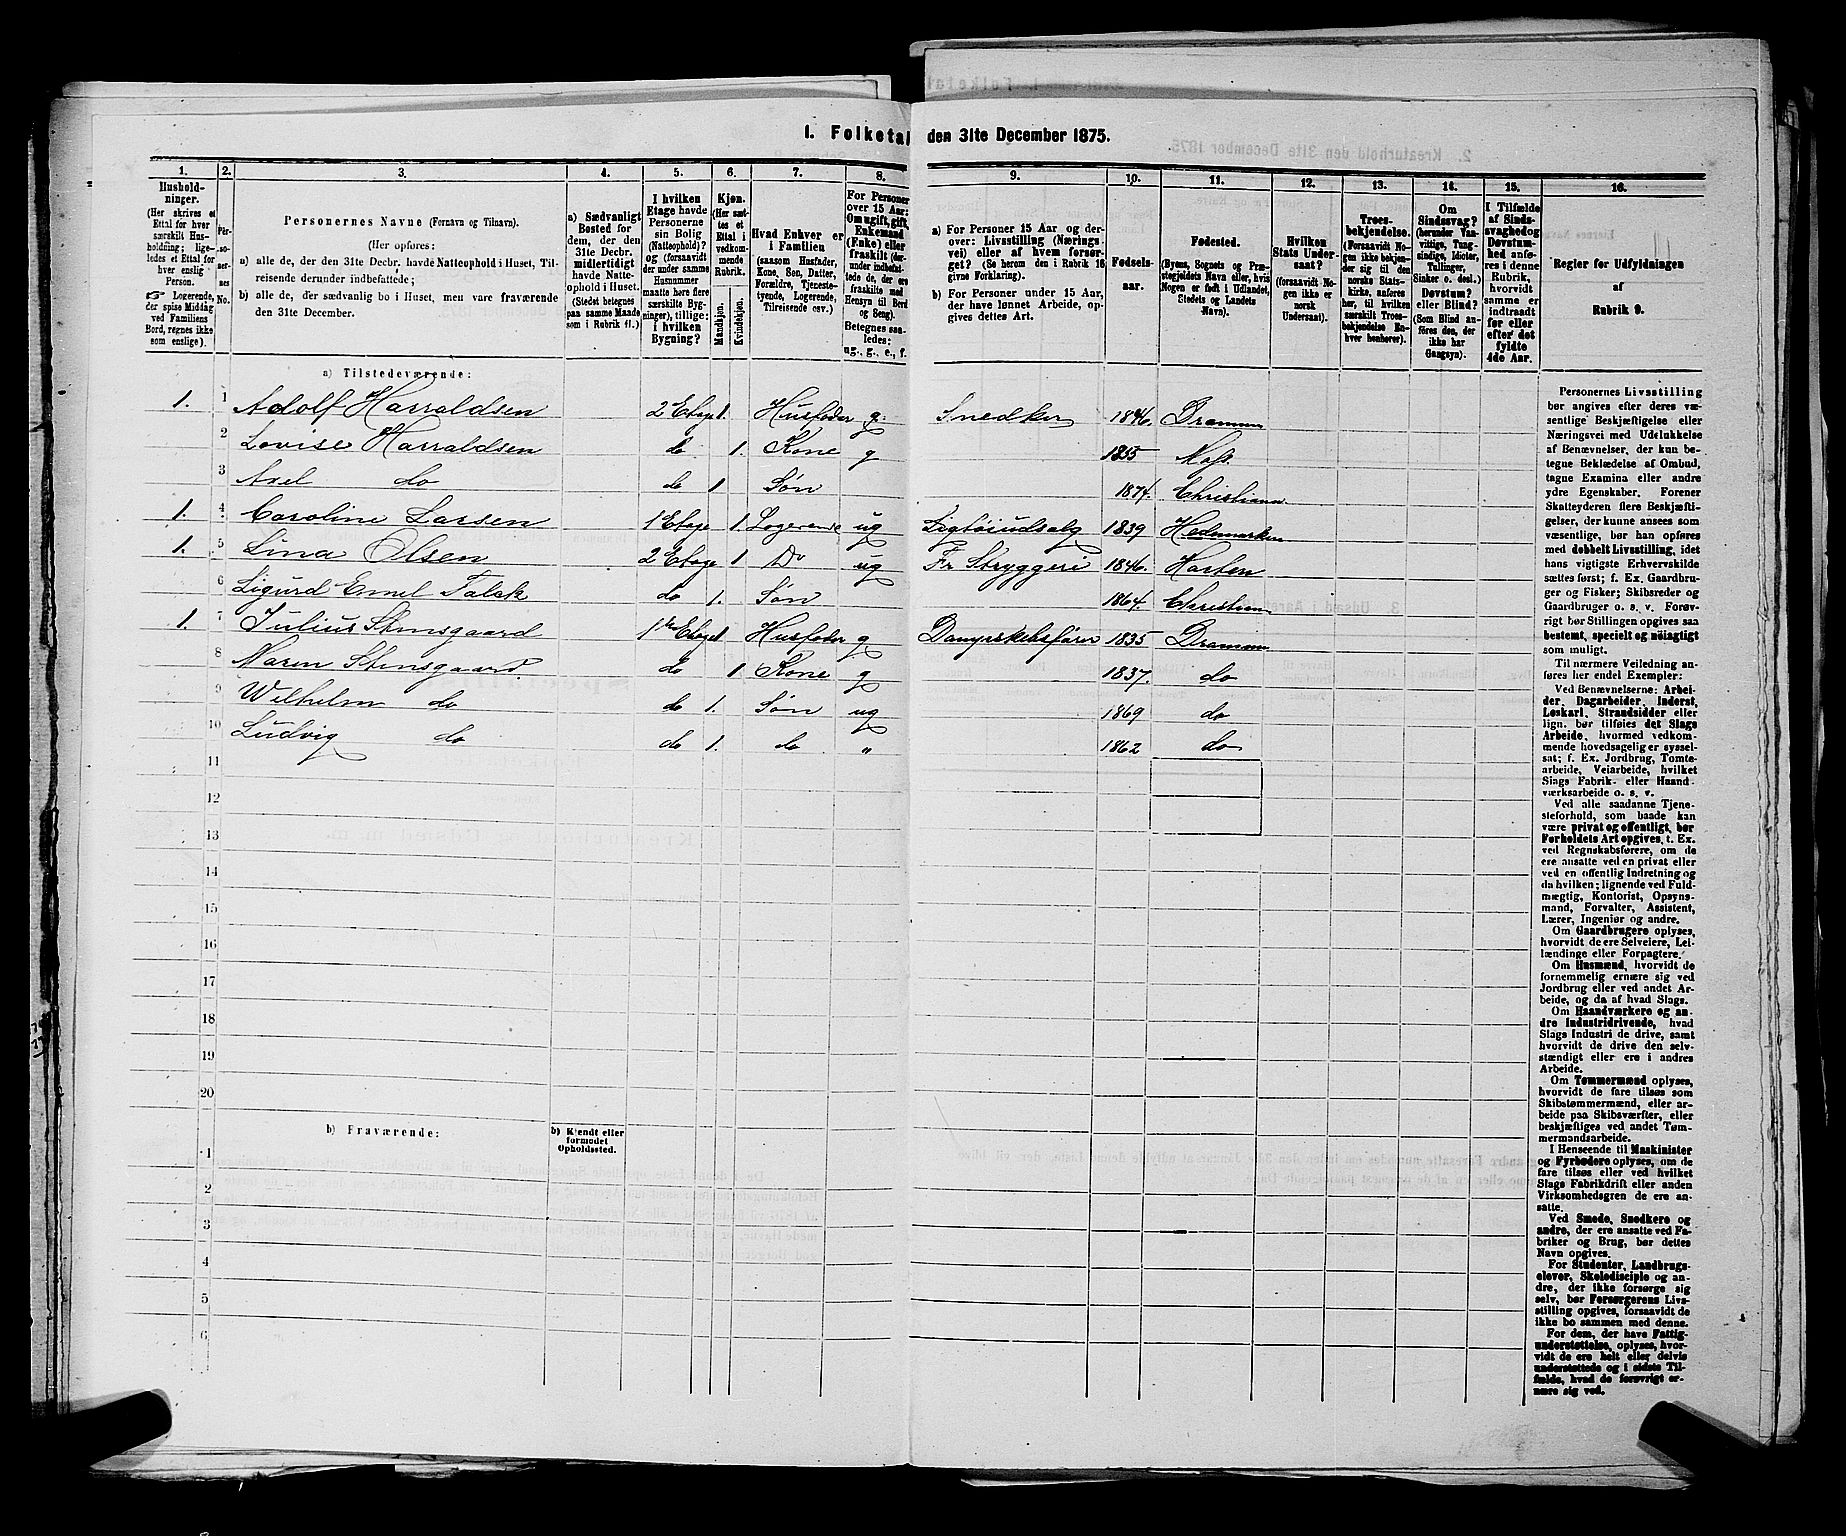 I. Folketal den 31te December 1875.
1. 2. 3. 4. 5. 6. 7. 8. 9. 10. 11. 12. 13. 14. 15. 16.
Husholdninger.
(Her skrives et
Ettal for hver
særskilt Husholdning;
ligeledes et Ettal for
hver enslig
Person.
☞ Logerende,
der spise Middag
ved Familiens
Bord, regnes ikke
som enslige).
Personernes No.
Personernes Navne (Fornavn og Tilnavn).
(Her opføres:
a) alle de, der den 31te Decbr. havde Natteophold i Huset, Tilreisende derunder indbefattede;
b) alle de, der sædvanlig bo i Huset, men vare fraværende
den 31te December.
a) Sædvanligt
Bosted for
dem, der den
31te Decbr.
midlertidigt
havde Natteophold
i Huset.
(Stedet betegnes
paa samme Maade
som i Rubrik 11.)
I hvilken
Etage havde
Personerne
sin Bolig
(Natteophold)?
og (forsaavidt
der under samme
Husnummer
maatte høre flere
særskilte Bygninger),
tillige:
i hvilken
Bygning?
Kjøn.
(Her sættes
et
Ettal i
vedkommende
Rubrik.
Mandkjøn.
Kvindekjøn.
Hvad Enhver er
i Familien
(saasom Husfader,
Kone, Søn, Datter,
Forældre, Tjenestetyende,
Logerende,
Tilreisende osv.)
For Personer
over 15 Aar:
Om ugift, gift,
Enkemand
(Enke) eller
fraskilt
Betegnes saaledes:
ug., g., e., f.
a) For Personer 15 Aar og derover:
Livsstilling (Næringsvei)
eller af hvem forsørget?
(Se herom den i Rubrik 16
givne Forklaring).
b) For Personer under 15 Aar,
der have lønnet Arbeide, opgives
dettes Art.
Fødselsaar.
Fødested.
(Byens, Sognets og Præstegjeldets
Navn eller, hvis
Nogen er født i Udlandet,
Stedets og Landets
Navn).
Hvilken
Stats Undersaat?
(forsaavidt Nogen
ikke er
norsk
Undersaat).
Troesbekjendelse.
(Forsaavidt Nogen
ikke bekjender
sig til den
norske Statskirke,
anføres
her, til hvilken
særskilt Troesbekjendelse
Enhver
henhører).
Om
Sindssvag?
(herunder Vanvittige,
Tungsindige,
Idioter,
Tullinger,
Sinker o. desl.)
Døvstum?
eller Blind?
(Som Blind anføres
den, der
ikke har
Gangsyn).
I Tilfælde
af Sindssvaghed
og
Døvstumhed
anføres
i denne
Rubrik,
hvorvidt
samme er
indtraadt
før eller
efter det
fyldte
4de Aar.
Regler for Udfyldningen
af
Rubrik 9.
a) Tilstedeværende:
1. 1 Adolf Harraldsen 2 Etage 1. Husfader g. Snedker 1846. Drammen
2 Lovise Harraldsen do 1. Kone g 1855 Moss.
3 Axel do do 1 Søn 1874. Christiania
1. 4 Caroline Larsen 1 Etage 1. Logerende ug Ligtøiudsalg 1839 Hedemarken
1. 5 Lina Olsen 2 Etage 1 Do ug Fr Stryggeri 1846. Horten
6 Sigurd Emil Falck do 1. Søn 1864. Christiania
1. 7 Julius Stensgaard 1ste Etage 1 Husfader g Dampskibsfører 1835 Drammen
8 Maren Stensgaard do 1. Kone g 1837. do
9 Wilhelm do do 1. Søn ug 1869 do
10 Ludvig do do 1. do " 1862 do
11
12
13
14
15
16
17
18
19
20
b) Fraværende:
b) Kjendt eller
formodet
Opholdssted.
1
2
3
4
5
6
Personernes Livsstilling
bør angives efter deres væsentlige
Beskjæftigelse eller
Næringsvei med Udelukkelse
af Benævnelser, der kun betegne
Beklædelse af Ombud,
tagne Examina eller andre
ydre Egenskaber. Forener
Skatteyderen flere Beskjæftigelser,
der kunne ansees som
væsentlige, bør han opføres
med dobbelt Livsstilling, idet
hans vigtigste Erhvervskilde
sættes først; f. Ex. Gaardbruger
og Fisker; Skibsreder og
Gaardbruger o. s. v. Forøvrigt
bør Stillingen opgives saa
bestemt, specielt og nøiagtigt
som muligt.
Til nærmere Veiledning anføres
her endel Exempler:
Ved Benævnelserne: Arbeider,
Dagarbeider, Inderst,
Løskarl, Strandsidder eller
lign. bør tilføies det Slags
Arbeide, hvormed vedkommende
hovedsagelig er sysselsat;
f. Ex. Jordbrug, Tomtearbeide,
Veiarbeide, hvilket
Slags Fabrik- eller Haandværksarbeide
o. s. v.
Ved alle saadanne Tjenesteforhold,
som baade kan
være privat og offentligt, bør
Forholdets Art opgives, t. Ex.
ved Regnskabsførere, om de
ere ansatte ved en privat eller
ved en offentlig Indretning og
da hvilken; lignende ved Fuldmægtig,
Kontorist, Opsynsmand,
Forvalter, Assistent,
Lærer, Ingeniør og andre.
Om Gaardbrugere oplyses,
hvorvidt de ere Selveiere, Leilændinge
eller Forpagtere.
Om Husmænd, hvorvidt de
fornemmelig ernære sig ved
Jordbrug eller ved andet Arbeide,
og da af hvad Slags.
Om Haandværkere og andre
Industridrivende, hvad
Slags Industri de drive, samt
hvorvidt de drive den selvstændigt
eller ere i andres
Arbeide.
Om Tømmermænd oplyses,
hvorvidt de fare tilsøs som
Skibstømmermænd, eller arbeide
paa Skibsværfter, eller
beskjæftiges ved andet Tømmermandsarbeide.
I Henseende til Maskinister
og Fyrbødere oplyses, om de
fare tilsøs eller ved hvilket
Slags Fabrikdrift eller anden
Virksomhedsgren de ere ansatte.
Ved Smede, Snedkere og
andre, der ere ansatte ved Fabriker
og Brug, bør dettes
Navn opgives.
For Studenter, Landbrugselever,
Skoledisciple og andre,
der ikke forsørge sig
selv, bør Forsørgerens Livsstilling
opgives, forsaavidt de
ikke bo sammen med denne.
For dem, der have Fattigunderstøttelse,
oplyses, hvorvidt
de ere helt eller delvis
understøttede og i sidste Tilfælde,
hvad de forøvrigt ernære
sig ved.